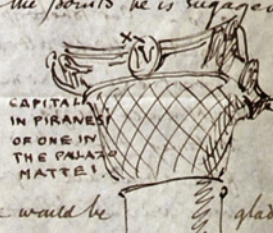 the points he is engaged
CAPITAL
IN PIRANESI
OF ONE IN
THE PALAZO
MATTEI.
would be glad